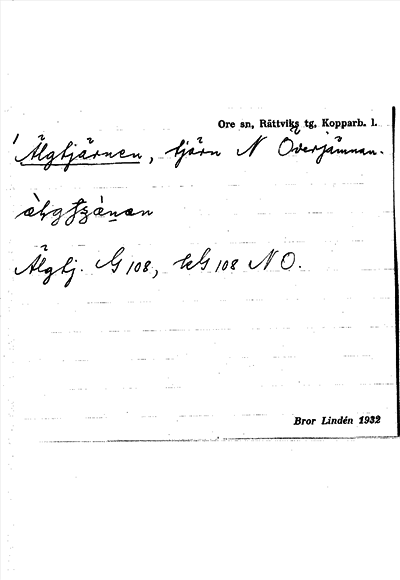 Ore sn, Rättviks tg, Kopparb. l.
Älgtjärnen, tjärn N Överjämnan.
Älgtj. G 108, kG 108 NO.
Bror Lindén 1932